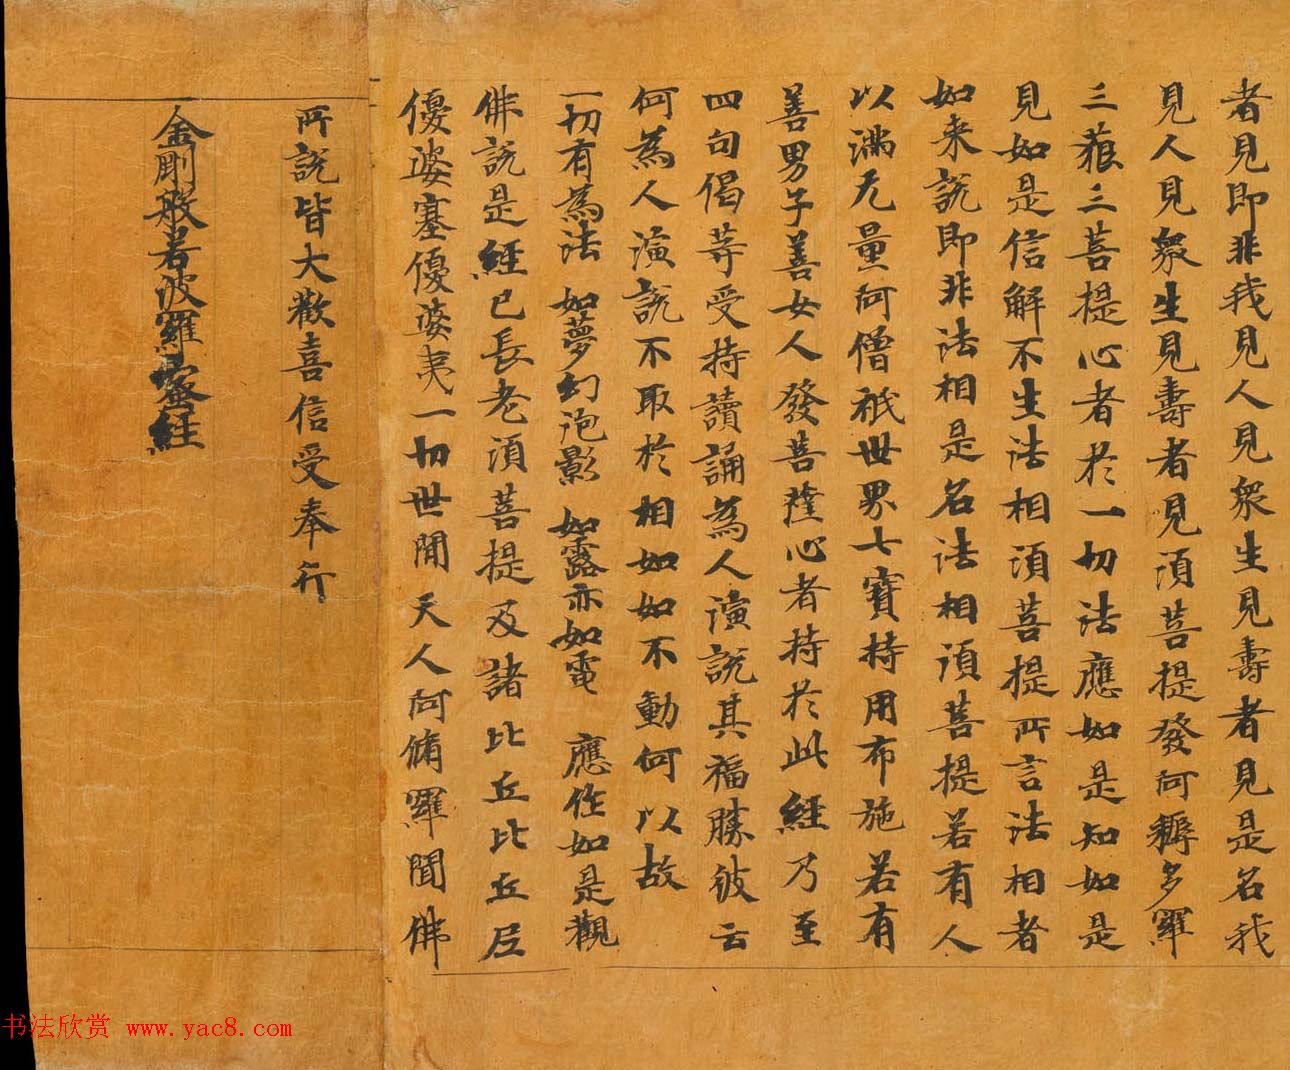 者見即非我見人見衆生見壽者見是名我
見人見衆生見壽者見須菩提發阿耨多羅
三藐三菩提心者於一切法應如是知如是
見如是信解不生法相須菩提所言法相者
如来說即非法相是名法相須菩提若有人
以滿无量阿僧祇世界七寶持用布施若有
善男子善女人發菩薩心者持於此經乃至
四句偈等受持讀誦為人演說其福勝彼云
何為人演說不取於相如如不動何以故
一切有為法 如夢幻泡影 如露亦如電 應作如是觀
佛說是經已長老須菩提及諸比丘比丘尼
優婆塞優婆夷一切世間天人阿脩羅聞佛
所說皆大歡喜信受奉行
金剛般若波羅蜜經
书法欣赏 www.yac8.com